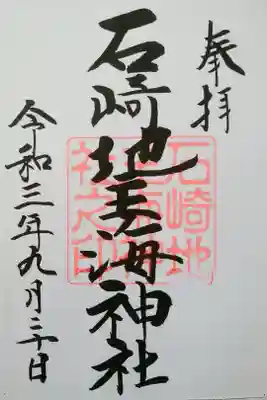 奉拝
石崎地主海神社
石崎地
主海神
社之印
令和三年九月三十日